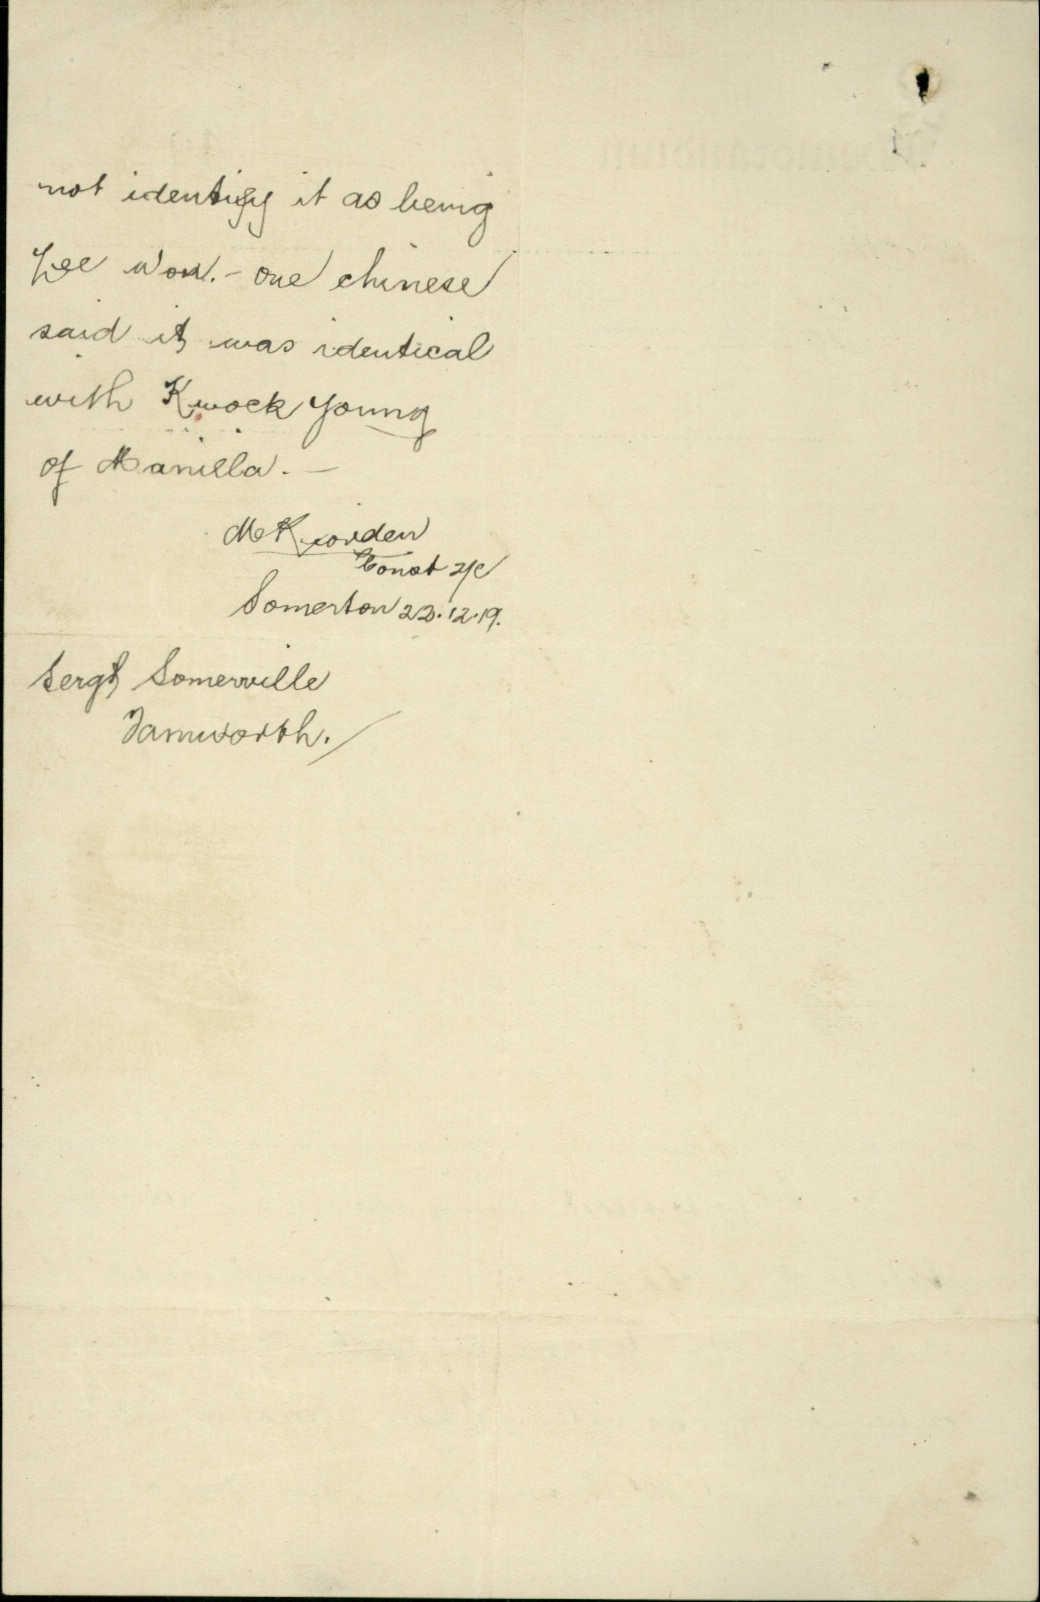 not identify it as being
Yee Wow. - one chinese
said it was identical
with Kwock Young
of Manilla. -
Const
Somerton 22.12.19.
Sergt Somerville
Tamworth.